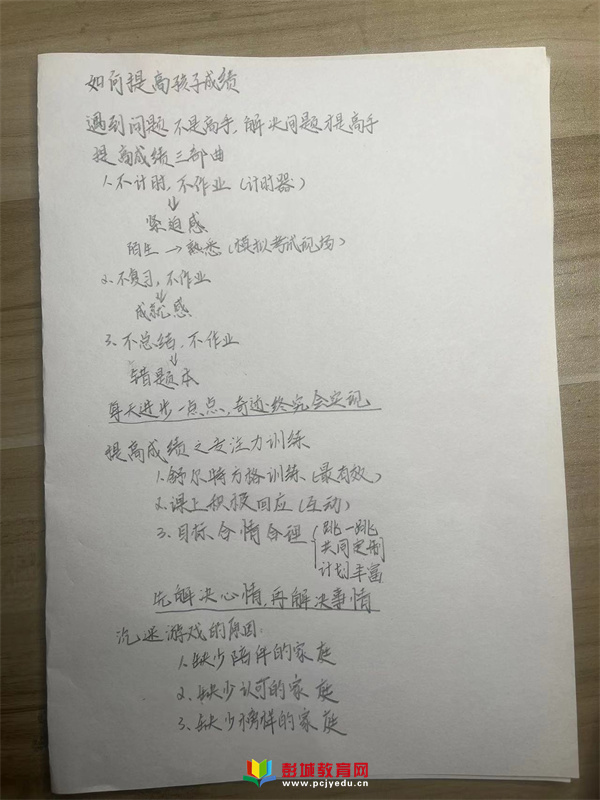 如何提高孩子成绩
遇到问题不是高手,解决问题才是高手
提高成绩三部曲
1.不计时,不作业(计时器)
↓
紧迫感
陌生→熟悉(模拟考试现场)
2.不复习,不作业
↓
成就感
3.不总结,不作业
↓
错题本
每天进步一点点,奇迹终究会实现
提高成绩之专注力训练
1.舒尔特方格训练(最有效)
2.课上积极回应(互动)
3.目标合情合理{跳一跳
共同定制
计划丰富
先解决心情,再解决事情
沉迷游戏的原因:
1.缺少陪伴的家庭
2.缺少认可的家庭
3.缺少榜样的家庭
彭城教育网
www.pcjyedu.cn